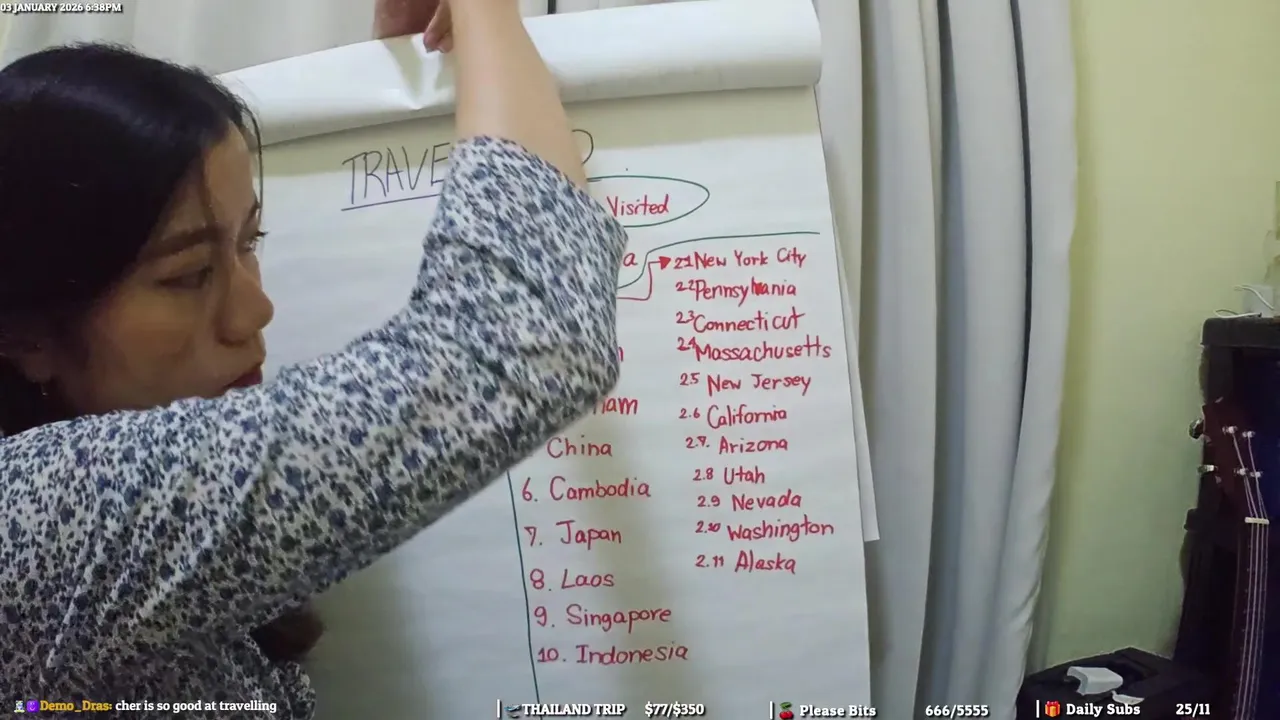 03 JANUARY 2026 6:38PM
TRAVE
Visited
a
21 New York City
22 Pennsylvania
23 Connecticut
24 Massachusetts
25 New Jersey
2.6 California
2.7. Arizona
2.8 Utah
2.9 Nevada
2.10 Washington
2.11 Alaska
nam
China
6. Cambodia
7. Japan
8. Laos
9. Singapore
10. Indonesia
Demo_Dras: cher is so good at travelling
THAILAND TRIP $77/$350
Please Bits 666/5555
Daily Subs 25/11